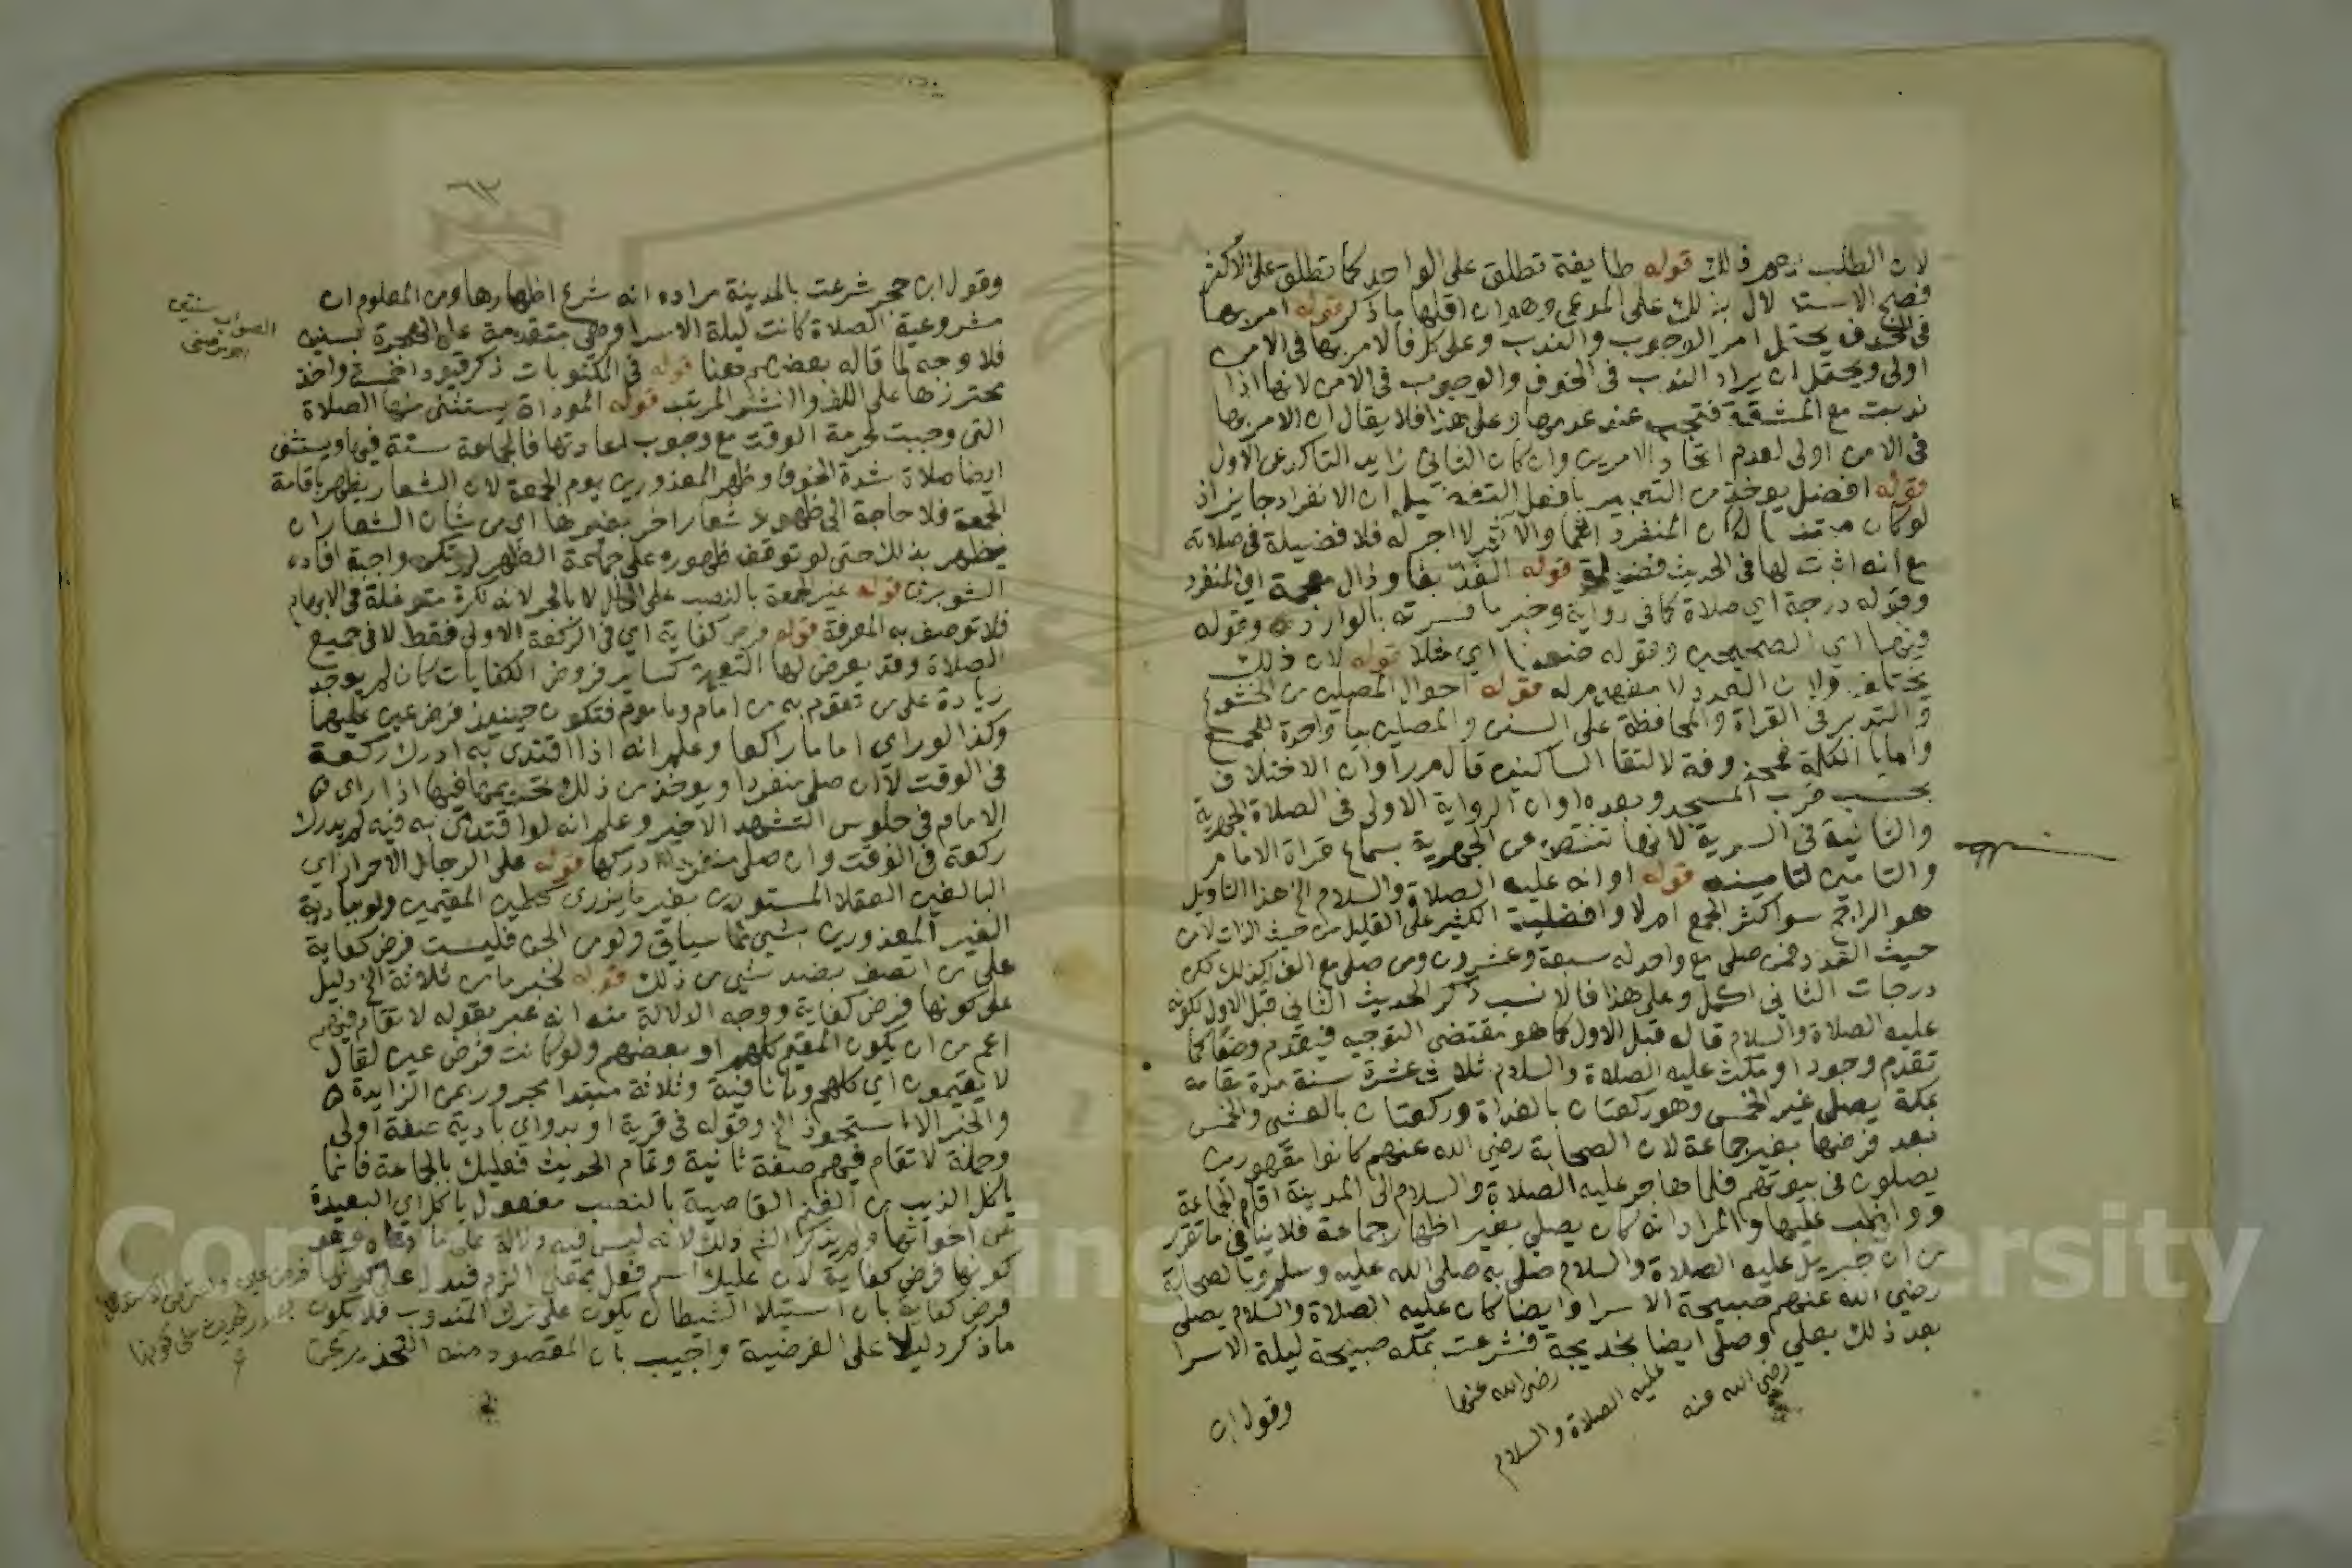 لان الطلب فى ذلك قوله طايفة تطلق على الواحد كما تطلق على الاكثر
فصح الاستدلال بذلك على المدعى وهو ان اقلها ما ذكر قوله امر بها
فى الخوف يحتمل امر الوجوب والندب وعلى كل فالامر بها فى الامن
اولى ويحتمل ان يراد الندب فى الخوف والوجوب فى الامن لانها اذا
ندبت مع المشقة فتجب عند عدمها وعلى هذا فلا يقال ان الامر بها
فى الامن اولى لعدم اتحاد الامرين وان كان الثانى زايد التاكد عن الاول
قوله افضل يوخذ من التعبير بافعل التفضيل ان الانفراد جايز اذ
لو كان ممتنعا لكان المنفرد اثما والاثم لا اجر له فلا فضيلة فى صلاته
مع انه اثبت لها فى الحديث فضيلة قوله الفذ بفا وذال معجمة اى المنفرد
وقوله درجة اي صلاة كما فى رواية وخير ما فسرته بالوارد وقوله
وفيهما اي الصحيحين وقوله ضعفا اي مثلا قوله لان ذلك
يختلف ولان العدد لا مفهوم له قوله احوال المصلين من الخشوع
والتدبر فى القراة والمحافظة على السنن والمصلين بيا واحدة للجمع
واما يا الكلمة فمحذوفة لالتقا الساكنين قال م ر او ان الاختلاف
بحسب قرب المسجد وبعده او ان الرواية الاولى فى الصلاة الجهرية
والثانية فى السرية لانها تنتقص عن الجهرية بسماع قراة الامام
والتامين لتامينه قوله او انه عليه الصلاة والسلام الخ هذا التاويل
هو الراجح سوا كثر الجمع ام لا وافضلية الكثير على القليل من حيث الذات لا من
حيث العدد فمن صلى مع واحد له سبعة وعشرون ومن صلى مع الف كذلك لكن
درجات الثانى اكمل وعلى هذا فالانسب ذكر الحديث الثانى قبل الاول لكونه
عليه الصلاة والسلام قاله قبل الاول كما هو مقتضى التوجيه فيقدم وضعا كما
تقدم وجودا ومكث عليه الصلاة والسلام ثلاث عشرة سنة مدة مقامه
بمكة يصلى غير الخمس وهو ركعتان بالغداة وركعتان بالعشى والخمس
بعد فرضها بغير جماعة لان الصحابة رضي الله عنهم كانوا مقهورين
يصلون فى بيوتهم فلما هاجر عليه الصلاة والسلام الى المدينة اقام الجماعة
وواظب عليها والمراد انه كان يصلى بغير اظهار جماعة فلا ينافى ما تقرر
من ان جبريل عليه الصلاة والسلام صلى به صلى الله عليه وسلم وبالصحابة
رضي الله عنهم صبيحة الاسرا وايضا كان عليه الصلاة والسلام يصلى
بعد ذلك بعلي وصلى ايضا بخديجة فشرعت بمكة صبيحة ليلة الاسرا
رضى الله عنه
عليه الصلاة والسلام
رضى الله عنها
وقول ابن
٦٢
وقول ابن حجر شرعت بالمدينة مراده انه شرع اظهارها ومن المعلوم ان
مشروعية الصلاة كانت ليلة الاسرا وهى متقدمة على الهجرة بسنين
الصواب بسنتين
فلا وجه لما قاله بعضهم هنا قوله فى المكتوبات ذكر قيود اخمسة واخذ
محترزها على اللف والنشر المرتب قوله المؤداة يستثنى منها الصلاة
التى وجبت لحرمة الوقت مع وجوب اعادتها فالجماعة سنة فيها ويستثنى
ايضا صلاة شدة الخوف وظهر المعذورين يوم الجمعة لان الشعار يظهر باقامة
الجمعة فلا حاجة الى ظهور شعار اخر بغيرها اى من شان الشعار ان
يظهر بذلك حتى لو توقف ظهوره على جماعة الظهر لم تكن واجبة افاده
الشوبري قوله غير الجمعة بالنصب على الحال لا بالجر لانه نكرة متوغلة فى الابهام
فلا توصف به المعرفة قوله فرض كفاية اى فى الركعة الاولى فقط لا فى جميع
الصلاة وقد يعرض لها التعين كساير فروض الكفايات كان لم يوجد
زيادة على من تقوم به من امام وماموم فتكون حينئذ فرض عين عليهما
وكذا لو راي اماما راكعا وعلم انه اذا اقتدى به ادرك ركعة
فى الوقت لا ان صلى منفردا ويوخذ من ذلك تحريمها فيما اذا راى
الامام فى جلوس التشهد الاخير وعلم انه لو اقتدى به فيه لم يدرك
ركعة فى الوقت وان صلى منفردا ادركها قوله على الرجال الاحرار اي
البالغين العقلا المستورين بغير ما يزرى كطين المقيمين ولو ببادية
الغير المعذورين بشي مما سياتى ولو من الجن فليست فرض كفاية
على من اتصف بضد شي من ذلك قوله لخبر ما من ثلاثة الخ دليل
على كونها فرض كفاية ووجه الدلالة منه انه عبر بقوله لا تقام فيهم
اعم من ان يكون المقيم كلهم او بعضهم ولو كانت فرض عين لقال
لا يقيمون اي كلهم وما نافية وثلاثة مبتدا مجرور بمن الزايدة
والخبر الا استحوذ الخ وقوله فى قرية او بدو اي بادية صفة اولى
وجملة لا تقام فيهم صفة ثانية وتمام الحديث فعليك بالجماعة فانما
ياكل الذيب من الغنم القاصية بالنصب مفعول ياكل اي البعيدة
عن اخواتها ولم يذكر الشم ذلك لانه ليس فيه دلالة على ما ادعاه وهو
كونها فرض كفاية لان عليك اسم فعل بمعنى الزم فيدل على كونها
فرض كفاية بان استيلا الشيطان يكون على ترك المندوب فلا يكون
فرض عين واعترض الاستدلال
ما ذكر دليلا على الفرضية واجيب بان المقصود منه التحذير عن